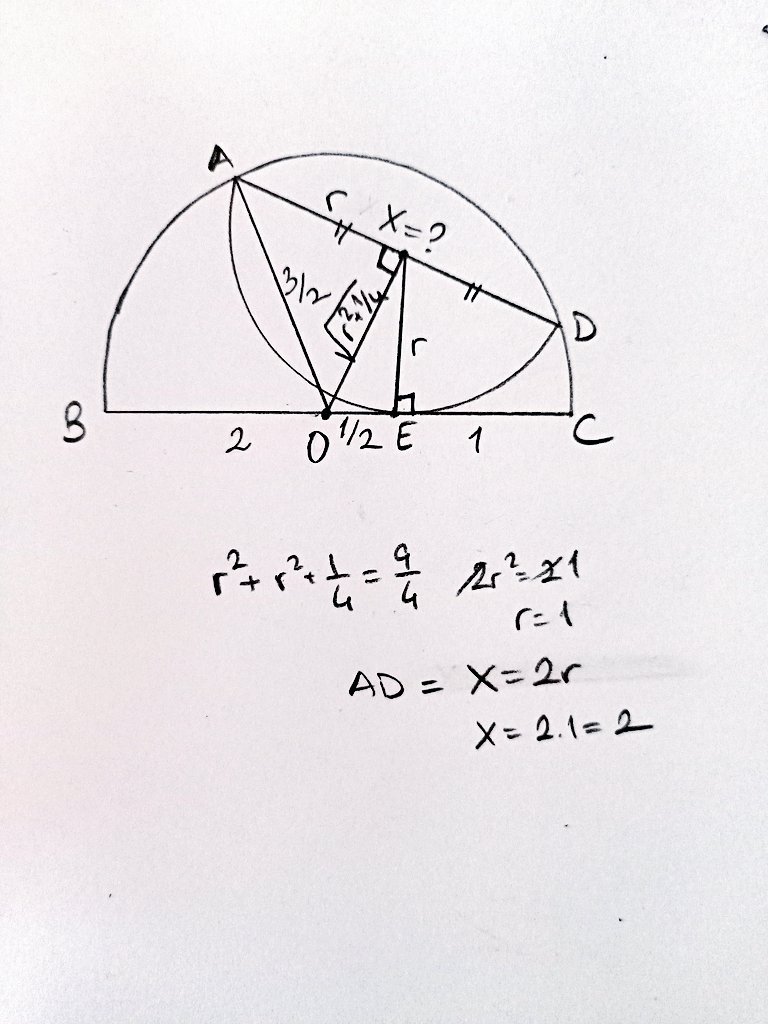 A
r
X=?
3/2
√r²+1/4
r
D
B
2
O
1/2
E
1
C
r²+r²+1/4=9/4 2r²=21
r=1
AD = X=2r
X=2.1=2